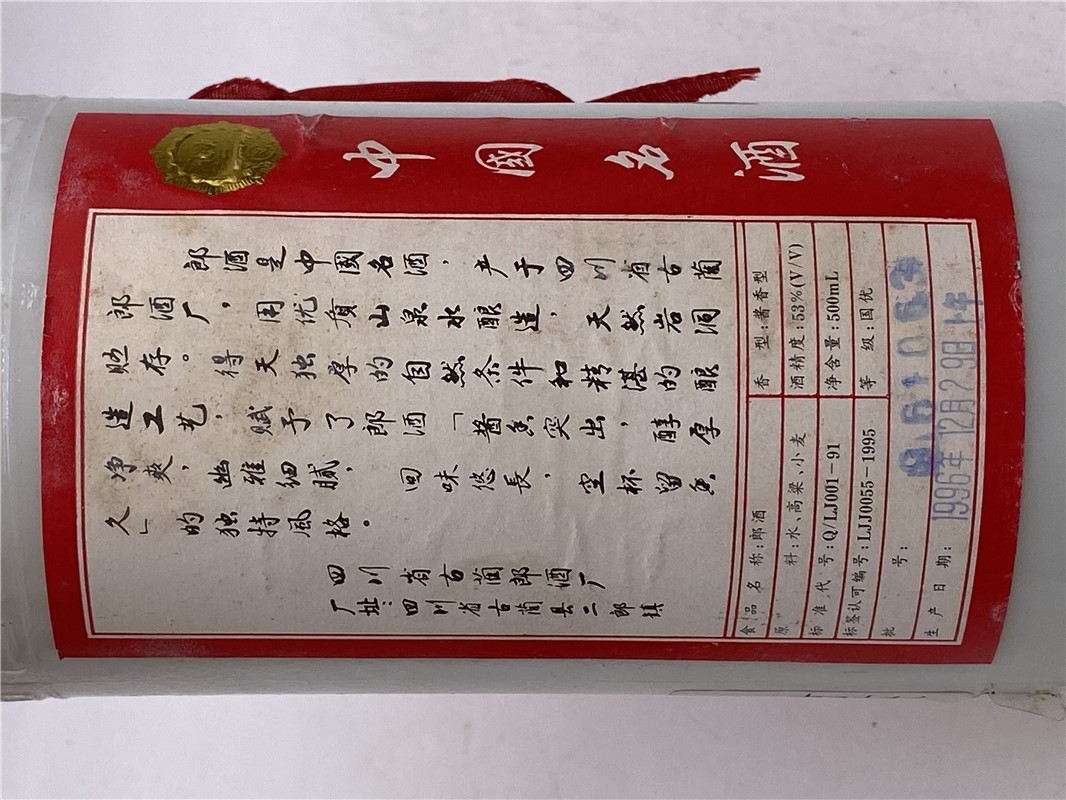 中國名酒
郎酒是中國名酒，产于四川省古蔺
郎酒厂，用优质山泉水酿造，天然岩洞
贮存。得天独厚的自然条件和精湛的酿
造工艺，赋予了郎酒「酱香突出，醇厚
净爽，幽雅细腻，回味悠長，空杯留香
久」的独特風格。
四川省古蔺郎酒厂
厂址：四川省古蔺县二郎镇
食品名称：郎酒 香型：酱香型
原料：水、高粱、小麦 酒精度：53%(V/V)
标准代号：Q/LJ001-91 净含量：500mL
标签认可编号：LJJ0055-1995 等级：国优
批号：
生产日期：1996年12月29日